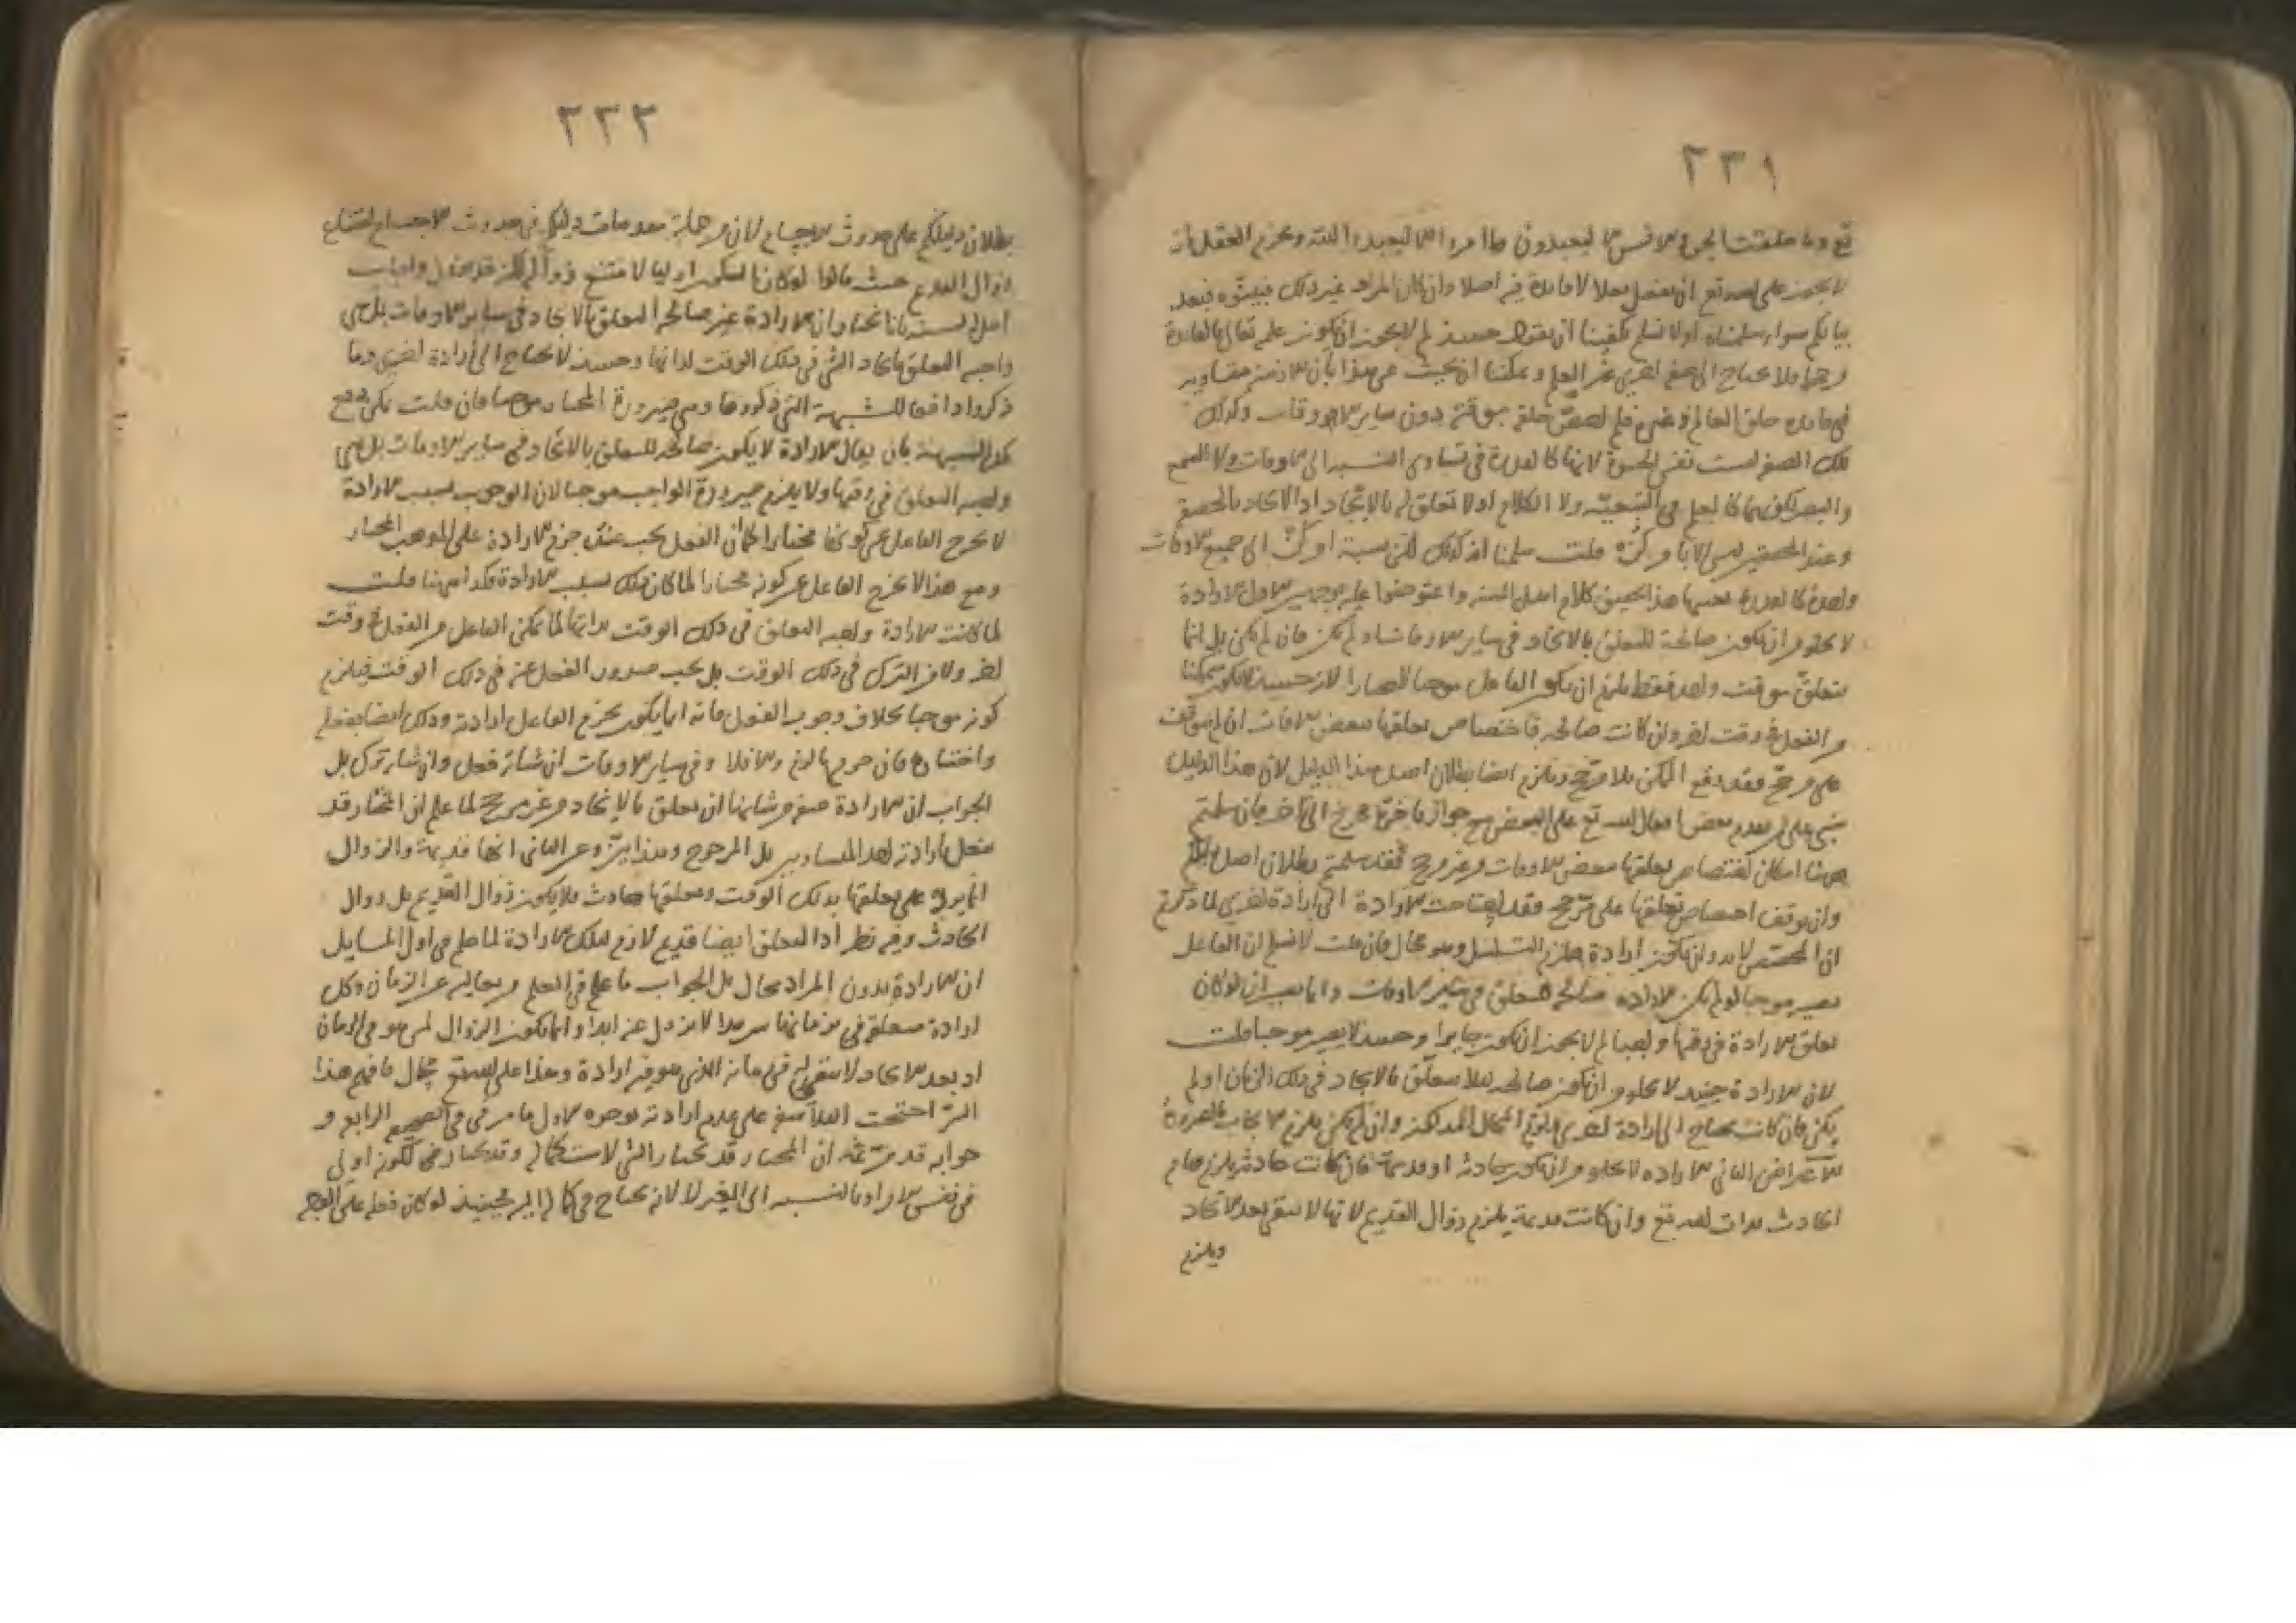 ٢٣١
تع وما خلقت الجن والانس الا ليعبدون وما امروا الا ليعبدوا الله وبجزم العقل انه
لا يجوز على الله تع ان يفعل فعلا لا فايدة فيه اصلا وان كان المراد غير ذلك فبينوه فبعد
بيانكم سواء سلمناه او لا نسلم يكفينا ان نقول حينئذ لم لا يجوز ان يكون علمه تعالى بالفايدة
فلا يحتاج الى صفة اخرى غير العلم ويمكننا ان نجيب عن هذا بان الازمنة متساوية
في فايدة خلق العالم وغيره فلم خصص خلقه بوقته دون ساير الاوقات وكذلك
تلك الصفة ليست نفس الحيوة لانها كالقدرة في تساوي النسبة الى الاوقات ولا السمع
والبصر لكونهما كالعلم في التبعية ولا الكلام اذ لا تعلق له بالايجاد
قلت سلمنا انه كذلك لكن نسبة او كن الى جميع الاوقات
واحدة كالقدرة بعينها هذا تحقيق كلام اهل السنة واعترضوا عليه بوجهين الاول الارادة
لا يخلو من ان يكون صالحة للتعلق بالايجاد في ساير الاوقات او لم تكن فان لم يكن بل انما
يتعلق بوقت واحد فقط يلزم ان يكون الفاعل موجبا لا مختارا لانه حينئذ لا يكون متمكنا
من الفعل في وقت اخر وان كانت صالحة فاختصاص تعلقها ببعض الاوقات ان لم يتوقف
على مرجح فقد وقع الممكن بلا مرجح ويلزم ايضا بطلان اصل هذا الدليل لان هذا الدليل
مبني على تقدم بعض افعال الله تع على البعض مع جواز تاخر فان سلمتم
ههنا امكان اختصاص تعلقها ببعض الاوقات من غير مرجح فقد سلمتم بطلان اصل دليلكم
وان توقف اختصاص تعلقها على مرجح فقد احتاجت الارادة الى ارادة اخرى لما ذكرتم
ان المخصص لا بد وان يكون ارادة فيلزم التسلسل وهو محال فان قلت لا نسلم ان الفاعل
يصير موجبا لو لم يكن الارادة صالحة للتعلق في ساير الاوقات وانما يصير ان لو كان
تعلق الارادة في وقتها واجبا لم لا يجوز ان يكون جايزا وحينئذ لا يصير موجبا قلت
لان الارادة حينئذ لا يخلو من ان يكون صالحة لئلا يتعلق بالايجاد في ذلك الزمان او لم
يكن فان كانت يحتاج الى ارادة اخرى فيلزم المحال المذكور وان لم يكن يلزم الايجاب بالضرورة
الاعتراض الثاني الارادة لا يخلو من ان يكون حادثة او قديمة فان كانت حادثة يلزم قيام
الحادث بذات الله تع وان كانت قديمة يلزم زوال القديم لانها لا تبقى بعد الايجاد
ويلزم
٢٣٢
بطلان دليلكم على حدوث الاجسام لان من جملة مقدمات دليلكم في حدوث الاجسام امتناع
زوال القديم حيث قالوا لو كان السكون ازليا لامتنع زواله لكنه قد يزول واجاب
اهل السنة بانا نختار ان الارادة غير صالحة للتعلق بالايجاد في ساير الاوقات بل هي
واجبة التعلق بايجاد الشيء في ذلك الوقت لذاتها وحينئذ لا يحتاج الى ارادة اخرى وما
ذكروا دافعا للشبهة التي ذكروها وهي صيرورة المختار موجبا فان قلت يمكن دفع
هذه الشبهة بان يقال الارادة لا يكون صالحة للتعلق بالايجاد في ساير الاوقات بل هي
واجبة التعلق في وقتها ولا يلزم صيرورة الواجب موجبا لان الوجوب بسبب الارادة
لا يخرج الفاعل عن كونه مختارا كما ان الفعل يجب عند جزم الارادة على المذهب المختار
ومع هذا لا يخرج الفاعل عن كونه مختارا لما كان ذلك بسبب الارادة فكذا ههنا قلت
لما كانت الارادة واجبة التعلق في ذلك الوقت بذاتها لما تمكن الفاعل من الفعل في وقت
اخر ولا من الترك في ذلك الوقت بل يجب صدور الفعل عنه في ذلك الوقت فيلزم
كونه موجبا بخلاف وجوب الفعل فانه انما يكون بجزم الفاعل ارادته وذلك ايضا بفعله
واختياره فان جزمها لزم والا فلا وفي ساير الاوقات ان شاء فعل وان شاء ترك بل
الجواب ان الارادة صفة من شانها ان تتعلق بالايجاد من غير مرجح لما علم ان المختار قد
يفعل بارادته احد المتساويين بل المرجوح وهذا بين وعن الثاني انها قديمة والزوال
انما يرد على تعلقها بذلك الوقت وتعلقها حادث فلا يكون زوال القديم بل زوال
الحادث وفيه نظر اذ التعلق ايضا قديم لازم لتلك الارادة لما علم في اول المسايل
ان الارادة بدون المراد محال بل الجواب ما علم في العلم من تعاليه عن الزمان وكل
ارادة متعلقة في زمانها سرمدا لا يزول عنه ابدا وانما يكون الزوال لمن هو في الزمان
اذ بعد الايجاد لا يبقى له زمانه الذي هو فيه ارادة وهذا على الله تع محال فافهم هذا
السر احتجت الفلاسفة على عدم ارادته بوجوه الاول ما مر في الرابع و
جوابه قد مر ثمه ان المختار قد يختار الشيء لاستكماله وقد يختاره لكونه اولى
في نفس الامر او بالنسبة الى الغير لا لانه يحتاج في كماله اليه فحينئذ لو كان فعله على الوجه